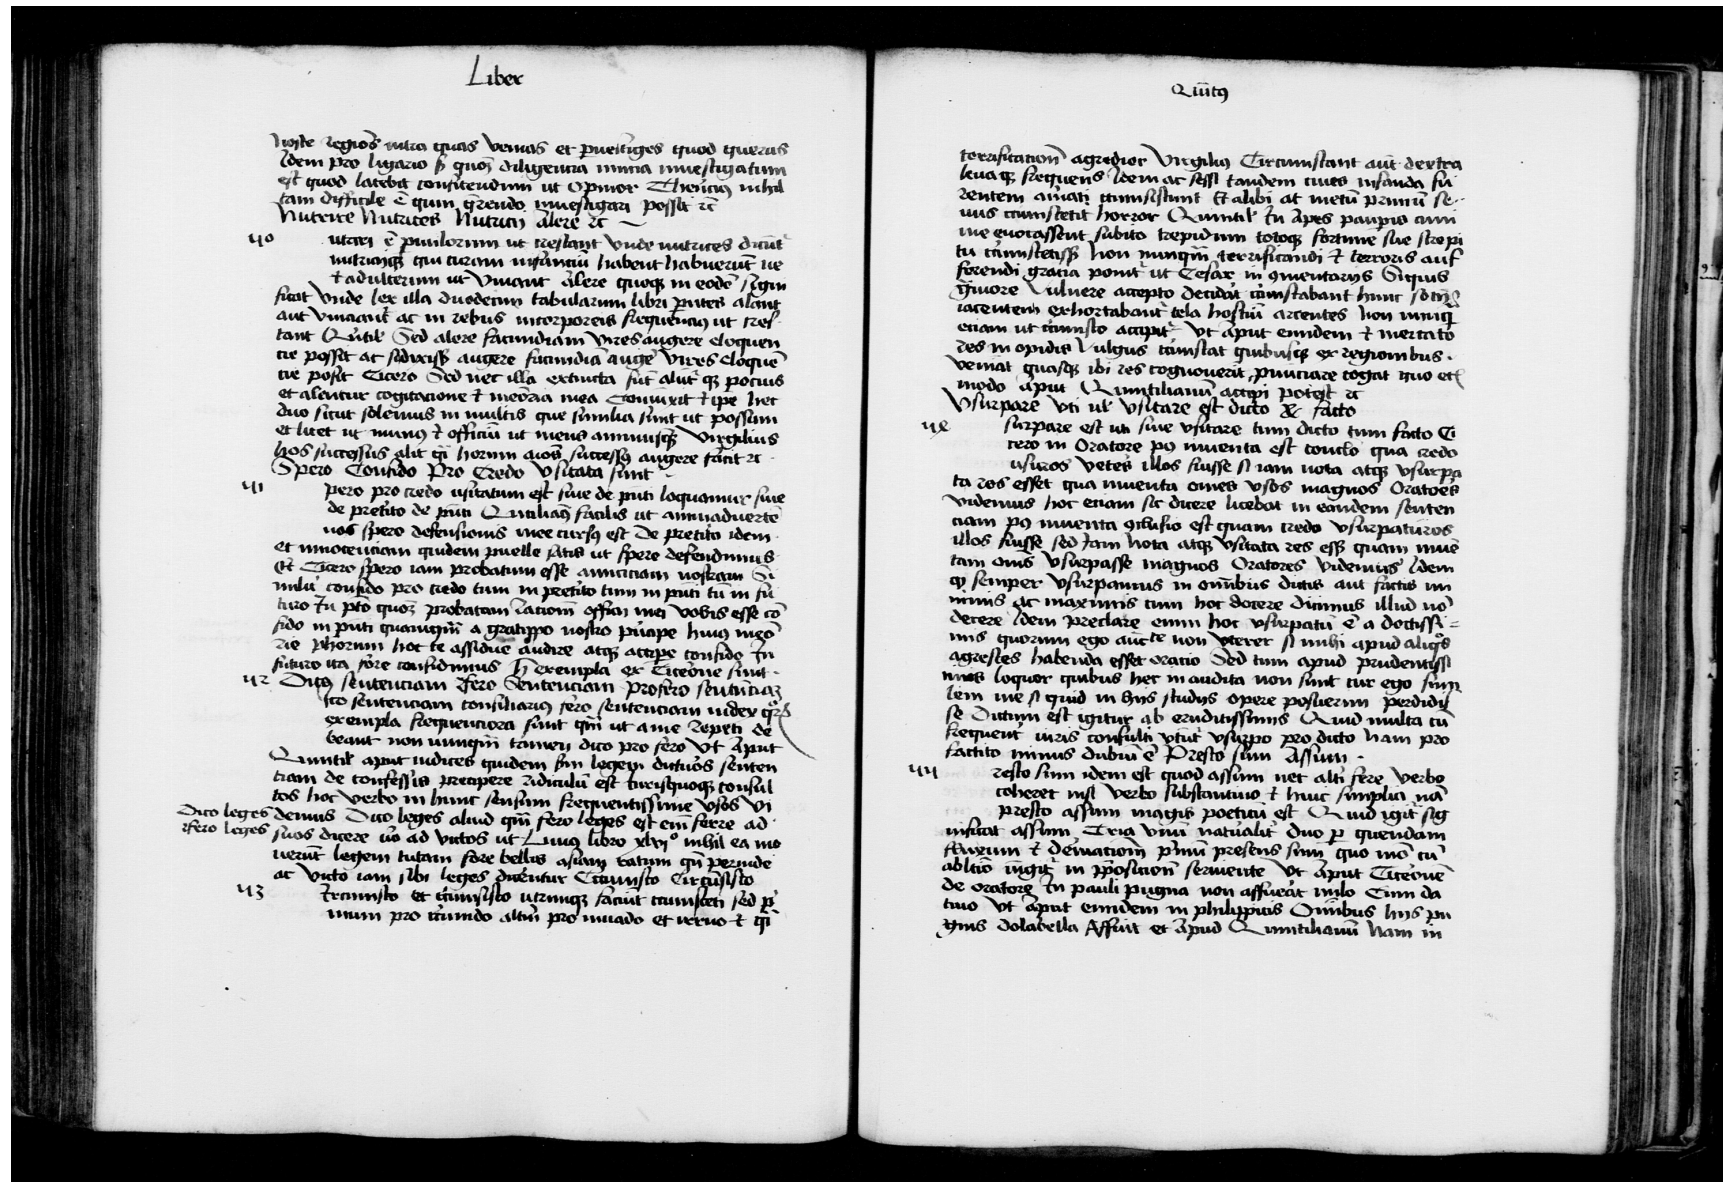 Liber
noste regiōs intra quas venias et pueſtiges quod queras
Idem pro ligario ſꝫ quoꝫ diligencia inimici inuestigatum
est quod latebat confitendum ut opinor Therēciꝰ nihil
tam difficile ē quin q̄rendo inuestigari possit ꝛc
Nutrire Nutrices Nutricij alere ꝛc
110
utrirj ē puulorum ut crescant vnde nutrices dicūtr
nutriciqꝫ qui curam infanciū habent habuerūt ue
⁊ adulterum ut viuant alere quoqꝫ in eodē sigīi
ficat vnde lex illa duodecim tabularum libri pntes alant
aut vinciantr ac in rebus incorporeis frequenciꝰ ut cres
cant Qūtil Sed alere facundiam vires augere eloquen
cie possit ac si dixisꝫ augere facundiā augē vires eloquē
cie posit Cicero Sed nec illa extincta sūt alūtr qꝫ pocius
et alentur cogitacione ⁊ meōria mea Coniūxit ⁊ ipe hec
duo sicut solemus in multis que similia sunt ut possum
et licet ut munꝰ ⁊ officiū ut mens animusqꝫ virgilius
hos successus alit q̄i horum aīos successꝰ augere facit ꝛc
Spero Confido Pro Credo vsitata sunt
111
pero pro credo usitatum est siue de pn̄ti loquamur siue
de pretito de pn̄ti Qūtilianꝰ facilis ut animaduerte
uos spero defensionis mee cursꝰ est De pretito idem
et innocenciam quidem puelle satis ut spero defendimus
Et Cicero spero iam probatum esse amiciciam nostram Si
militr confido pro credo tum in pretito tum in pn̄ti tū in fu
turo In pt̄o quoqꝫ probatam racionē officij mei vobis esse cō
fido in pn̄ti quamqm̄ a gratippo nostro pncipe huiꝰ meō
rie phorum hoc te assidue audire atqꝫ accipe confido In
futuro ita fore confidimus H exempla ex Cicerōe sunt
112 Dicꝰ sentenciam Fero Sentenciam profero sentēciaꝫ
ico sentenciam consiliariꝰ fero sentenciam iudex qrꝫ
exempla frequenciora sunt qm̄ ut a me repeti de
beant non nunqm̄ tamen dico pro fero vt apūt
Quintil apūt iudices quidem ſm̄ legem dicturos senten
ciam de confessis precipere ridiculū est Iurisquoqꝫ consul
tos hoc verbo in hunc sensum frequentissime vsos vi
Dico leges
⁊fero leges
demus Dico leges aliud qm̄ fero leges est em̄ ferre ad
suos dicere v̄o ad victos ut Liuiꝰ libro xlvi° nihil ea mo
uerūt legem tutam fore bellis asiam ratum qn̄ perinde
ac victo iam sibi leges dicentur Circūmsto Circūsisto
113
Ircumsto et circūsisto utrumqꝫ faciūt circūsteti sed pri
mum pro circūmdo altm̄ pro inuado et irruo ⁊ q̄i
Quītꝰ
territitacionē agredior virgiliꝰ Circumstant aūt dextra
leuaqꝫ frequens Idem ac fessi tandem ciues infanda fu
rentem armati circūsistunt Et alibi at metū primū se
uus circūstetit horror Quintil In apes paupis cum
me euocassent subito trepidum totoqꝫ fortune sue strepi
tu circūstetisꝫ Non nunqm̄ terrificandi ⁊ terroris auf
ferendi gratia ponitr ut Cesar in ꝯmentarijs Siquis
g̈uiore vulnere accepto deciderat circūstabant hunc
iacentem exhortabantr tela hostiū arcentes Non nunqꝫ
eciam ut circūsto accipitr vt apūt eundem ⁊ mercato
res in opidis vulgus circūstat quibusqꝫ ex regionibus
veniāt quasqꝫ ibi res cognouerit pnunciare cogat quo et
modo apūt Quintilianū accipi potest ꝛc
Vsurpare vti ul vsitare est dicto ⁊ facto
surpare est uti siue vsitare tum dicto tum facto Ci
cero in Oratore pꝰ inuenta est conclo qua credo
usuros vetes illos fuisse si iam nota atqꝫ vsurpa
ta res esset qua inuenta om̄es vsos magnos Oratoēs
videmus hoc eciam sic dicere licebat in eandem senten
ciam pꝰ inuenta ꝯclusio est quam credo vsurpaturos
illos fuisse sed iam nota atqꝫ vsitata res essꝫ quam inuē
tam om̄s vsurpasse magnos Oratores videmus Idem
qꝫ semper vsurpamus in om̄ibus dictis aut factis mi
nimis ac maximis cum hoc docere dicimus illud nō
decere Idem preclare enim hoc vsurpatū ē a doctissi
mis quorum ego auct̄te non vterer si mihi apud aliqͦs
agrestes habenda esset oratio Sed cum apud prudentissi
mos loquor quibus hec in audita non sunt cur ego simu
lem me si quid in hijs studijs opere posuerim perdidis
se Dictum est igitur ab eruditissimis Quid multa cū
frequent̄ iuris consulti vtūtr vsurpo pro dicto Nam pro
factito minus dubiū ē Presto sum Assum
resto sum idem est quod assum nec alti fere verbo
coheret nisi verbo substantiuo ⁊ huic simplici nā
presto assum magis poeticū est Quid igitr sig
nificat assum Tria vnū nat̄ualitr duo p quendam
fluxum ⁊ deriuacionē pm̄ū presens sum quo mō cū
abltiō iūgitr in pposicionē seruiente vt apūt Ciceronē
de oratore In pauli pugna non affuerat milo Cum da
tiuo vt apūt eundem in philippicis Omībus hijs pu
gnis dolabella Affuit et apud Quintilianū Nam in